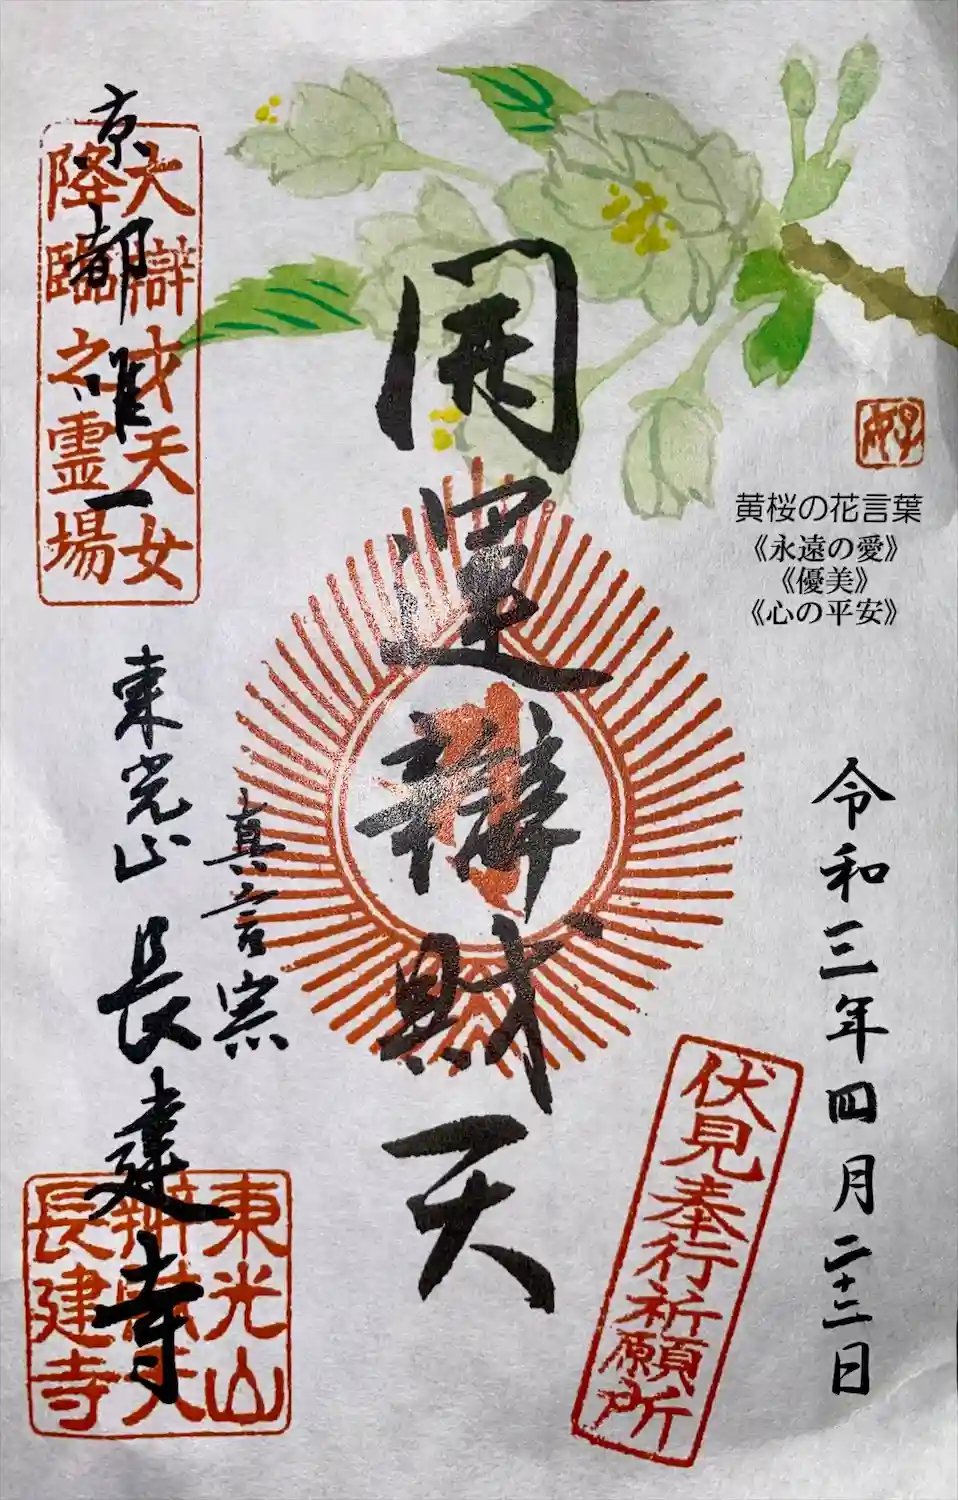 黄桜の花言葉
《永遠の愛》
《優美》
《心の平安》
令和三年四月二十二日
伏見奉行祈願所
開運辨財天
真言宗
京都唯一
東光山長建寺
大辯才天女
降臨之霊場
東光山
辨財天
長建寺